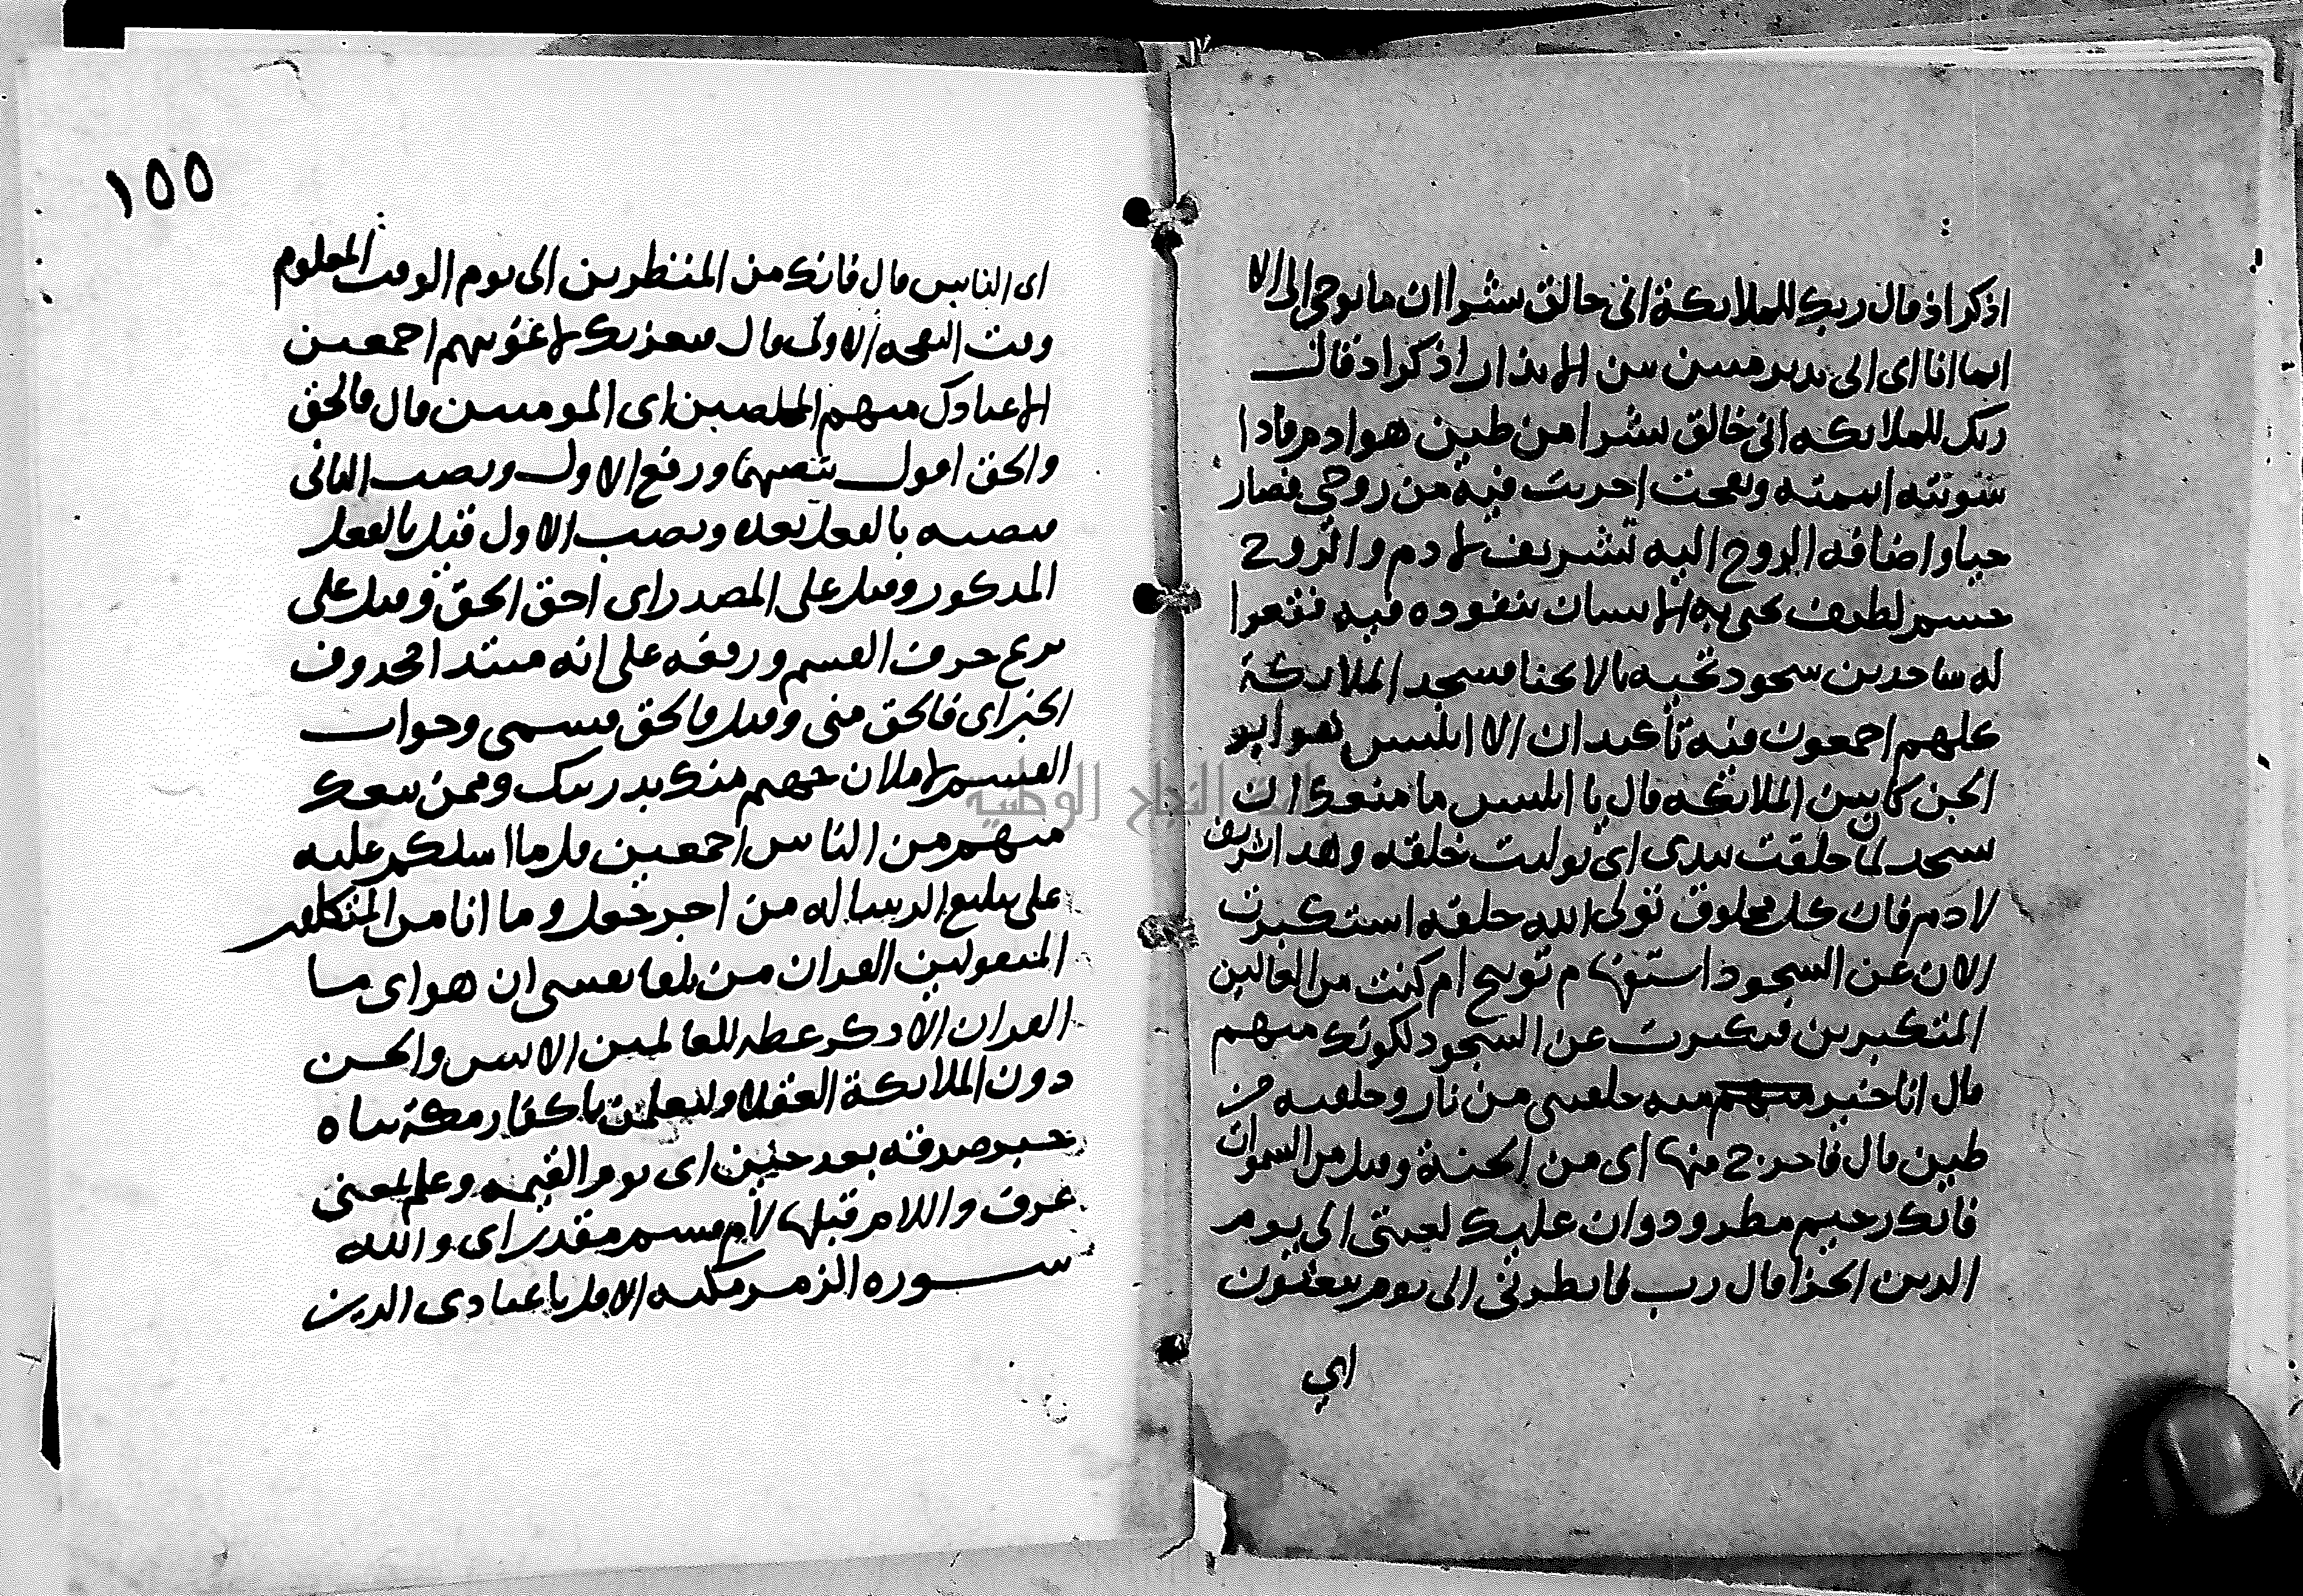 اذكر اذ قال ربك للملائكة اني خالق بشرا ان ما يوحى الي الا
انما انا اي اني نذير مبين بين الانذار اذكر اذ قال
ربك للملائكه اني خالق بشرا من طين هو ادم فاذا
سويته اتممته ونفخت اجريت فيه من روحي فصار
حيا واضافه الروح اليه تشريف لادم والروح
جسم لطيف يحيى به الانسان بنفوذه فيه فقعوا
له ساجدين سجود تحيه بالانحنا فسجد الملائكة
كلهم اجمعون فيه تأكيدان الا ابليس هو ابو
الجن كان بين الملائكه قال يا ابليس ما منعك ان
تسجد لما خلقت بيدي اي توليت خلقه وهذا تشريف
لادم فان كل مخلوق تولى الله خلقه استكبرت
الان عن السجود استفهام توبيخ ام كنت من العالين
المتكبرين فتكبرت عن السجود لكونك منهم
قال انا خير منه خلقتني من نار وخلقته من
طين قال فاخرج منها اي من الجنة وقيل من السموات
فانك رجيم مطرود وان عليك لعنتي الى يوم
الدين الجزا قال رب فانظرني الى يوم يبعثون
اي
١٥٥
اي الناس قال فانك من المنظرين الى يوم الوقت المعلوم
وقت النفخه الاولى قال فبعزتك لاغوينهم اجمعين
الا عبادك منهم المخلصين اي المومنين قال فالحق
والحق اقول بنصبهما ورفع الاول ونصب الثاني
فنصبه بالفعل بعده ونصب الاول قيل بالفعل
المذكور وقيل على المصدر اي احق الحق وقيل على
نزع حرف القسم ورفعه على انه مبتدا محذوف
الخبر اي فالحق مني وقيل فالحق قسمي وجواب
القسم لاملان جهنم منك بذريتك وممن تبعك
منهم من الناس اجمعين قل ما اسلكم عليه
على تبليغ الرساله من اجر جعل وما انا من المتكلفين
المتقولين القران من تلقا نفسي ان هو اي ما
القران الا ذكر عظه للعالمين الانس والجن
دون الملائكة العقلا ولتعلمن يا كفار مكة نباه
خبر صدقه بعد حين اي يوم القيمه وعلم بمعنى
عرف واللام قبلها لام قسم مقدر اي والله
سوره الزمر مكيه الا قل يا عبادي الذين